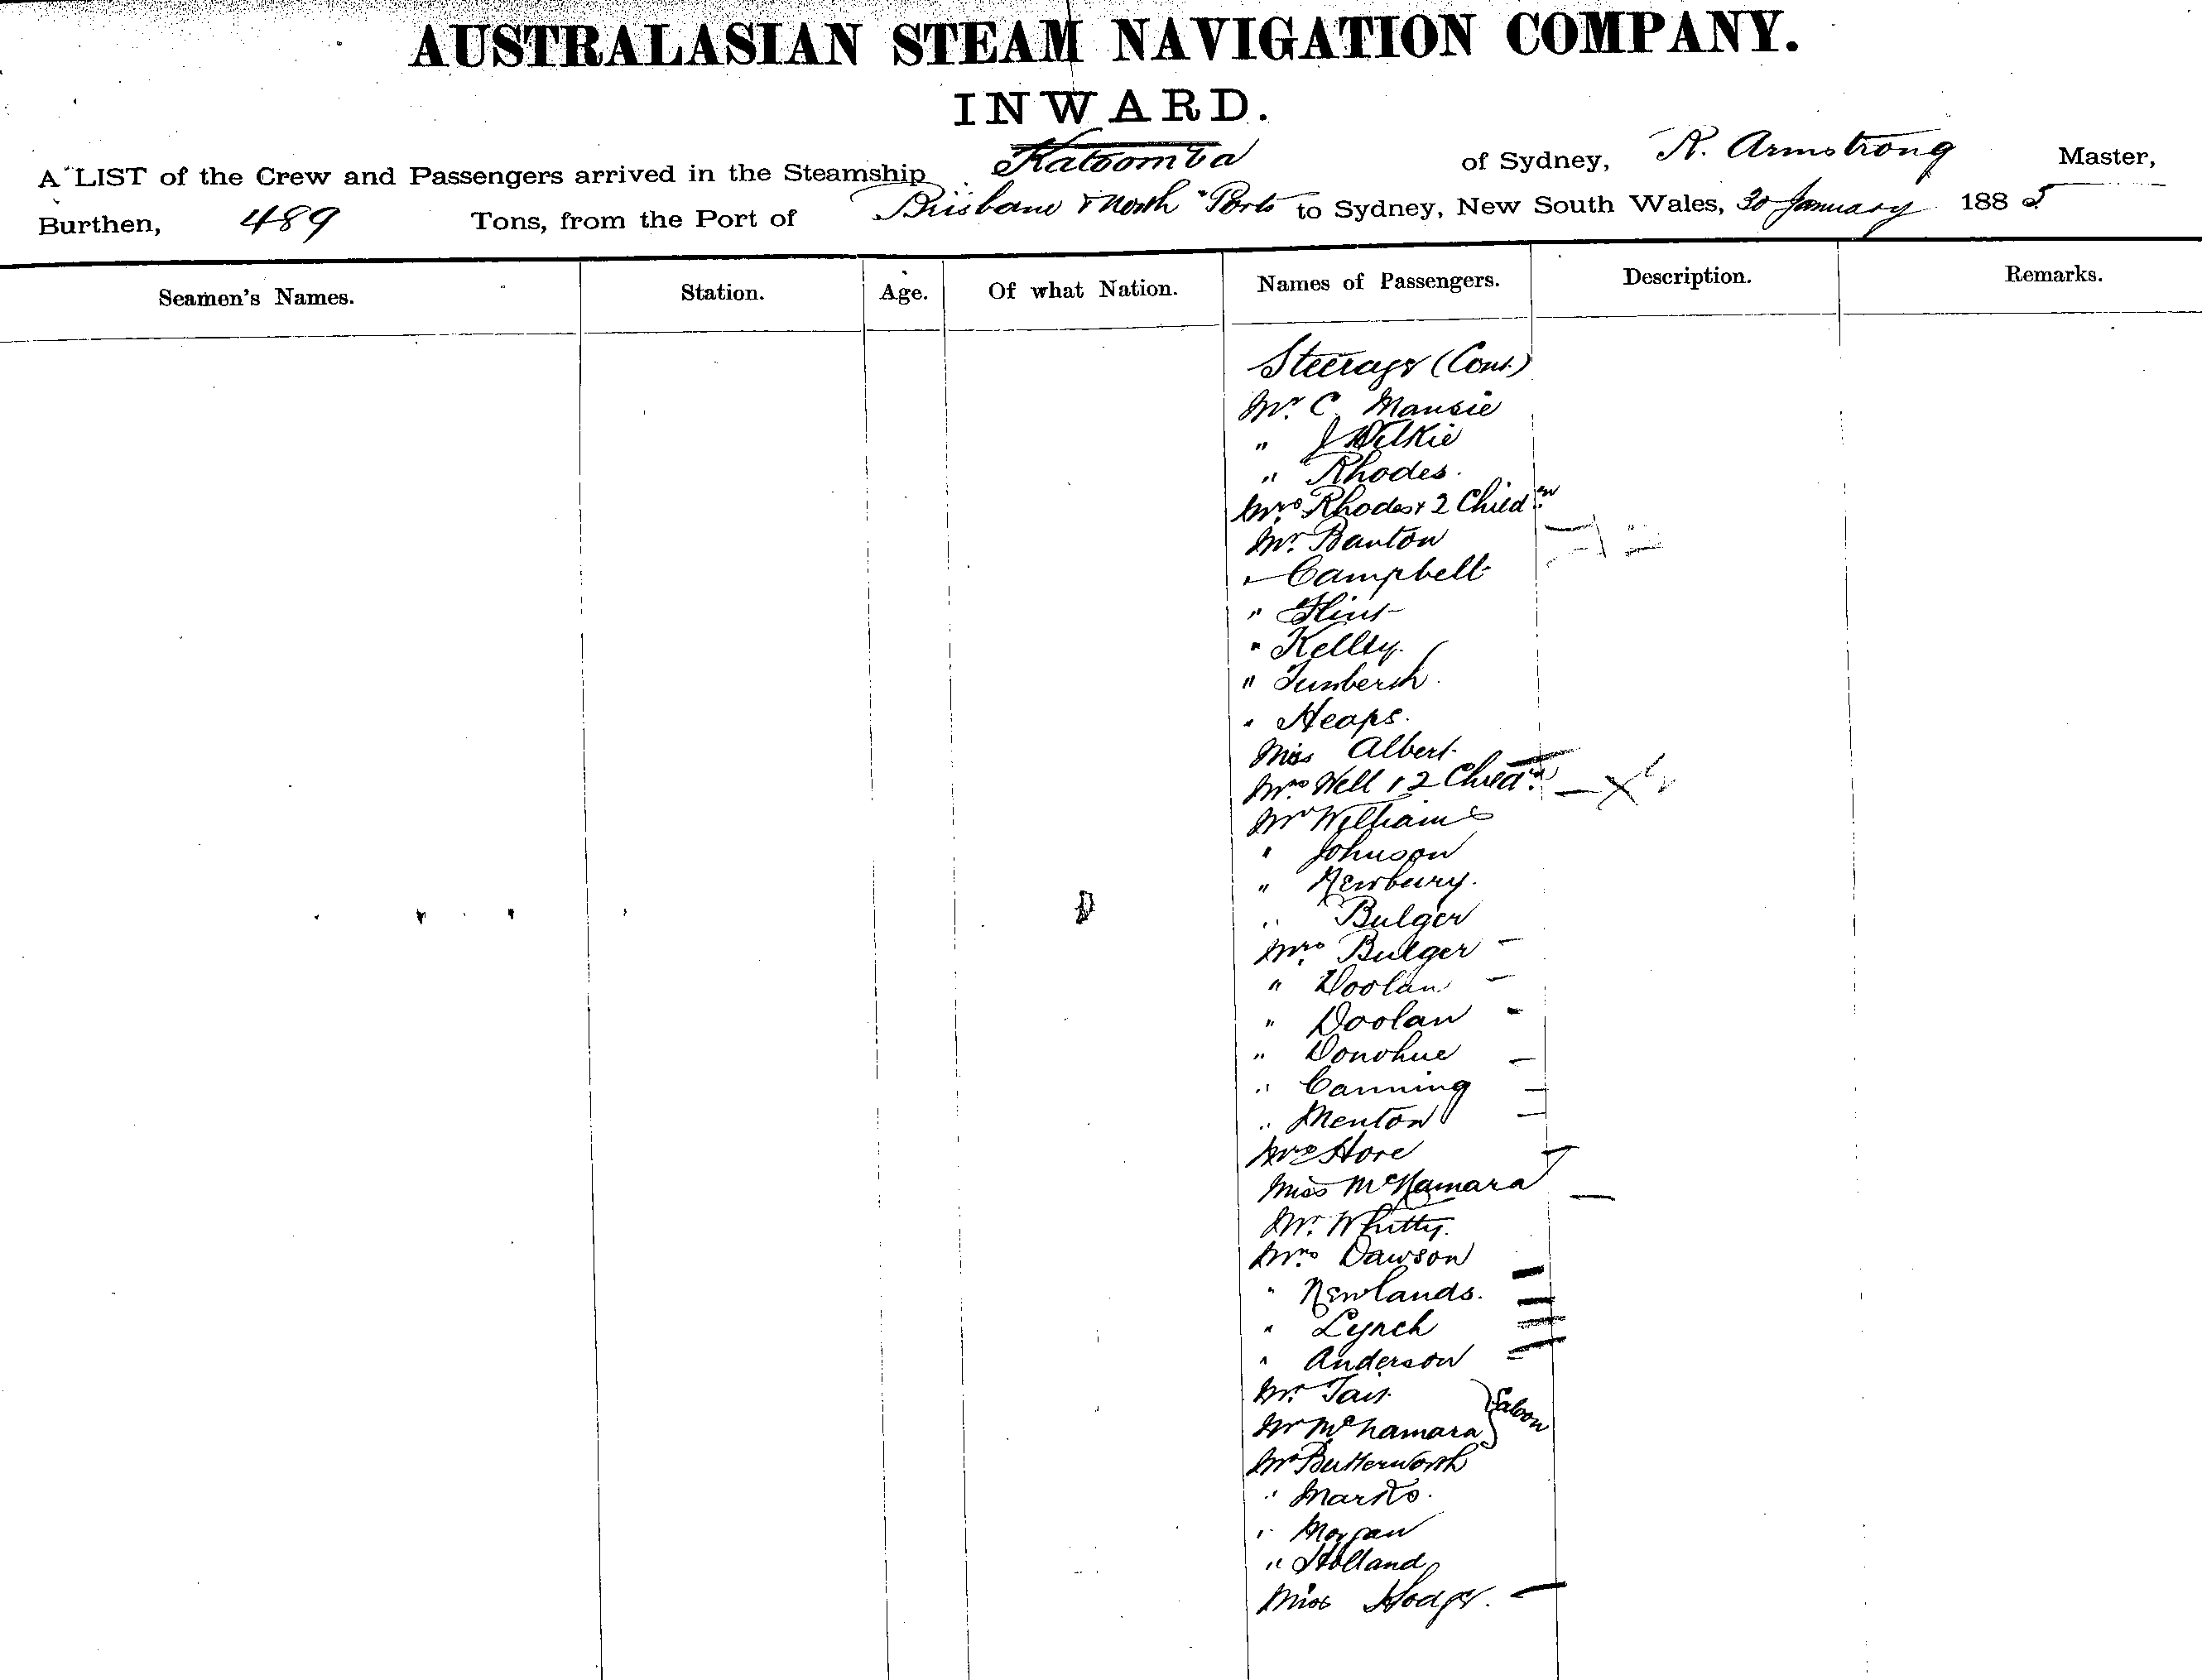 AUSTRALASIAN STEAM NAVIGATION COMPANY.
INWARD.
A LIST of the Crew and Passengers arrived in the Steamship Katoomba of Sydney, R. Armstrong Master,
Burthen, 489 Tons, from the Port of Brisbane & North Ports to Sydney, New South Wales, 30 January 1885
Seamen's Names. Station. Age. Of what Nation. Names of Passengers. Description. Remarks.
Steerage (Cont.)
Mr. C. Mansie
" J Wilkie
" Rhodes.
Mrs. Rhodes & 2 Childen
Mr. Banton
" Campbell
" Flint
" Kelley.
"
" Heaps.
Miss Albert
Mrs Well & 2 Childn
Mr Williams
" Johnson
" Newbury.
" Bulger
Mrs. Bulger
" Doolan
" Doolan
" Donohue
" Canning
" Menton
Mrs Hore
Miss McNamara
Mr. Whitty.
Mrs. Dawson
" Newlands.
" Lynch
" Anderson
Mr. Tait
Mr McNamara } Saloon
Mr Butterworth
" Marks.
" Morgan
" Holland
Miss Hodge.